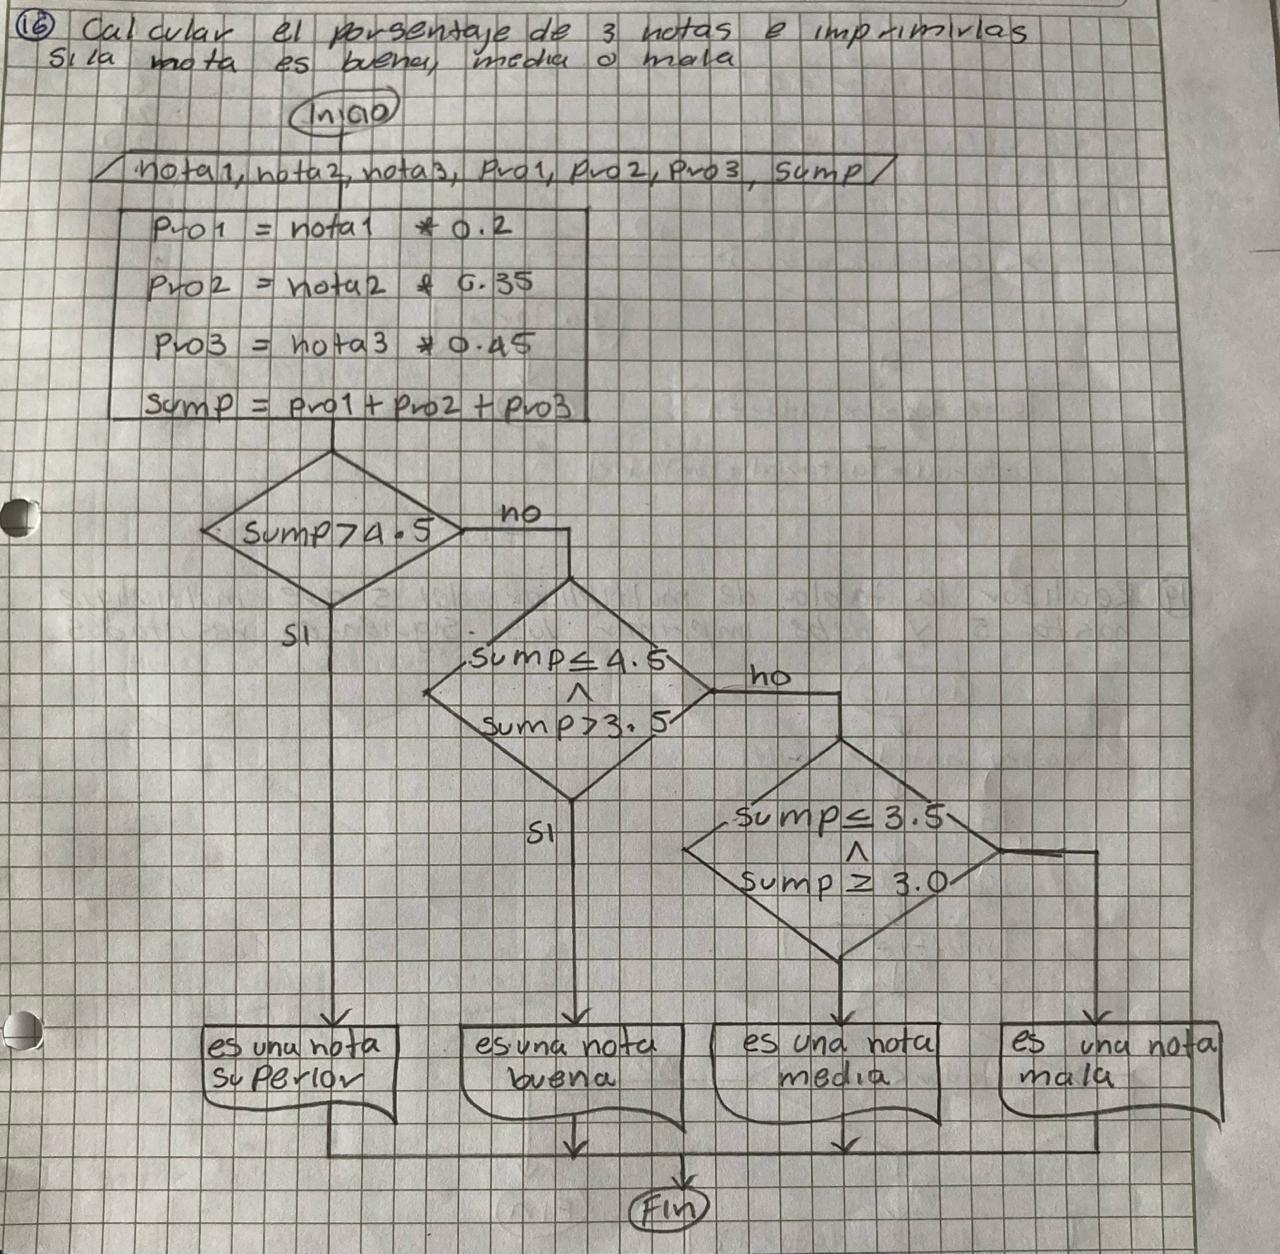 16 Calcular el porsentaje de 3 notas e imprimirlas
si la nota es buena, media o mala
Inicio
nota1, nota2, nota3, pro1, pro2, pro3, sump
pro1 = nota1 * 0.2
pro2 = nota2 * 0.35
pro3 = nota3 * 0.45
sump = pro1 + pro2 + pro3
sump > 4.5
no
SI
sump ≤ 4.5
∧
sump > 3.5
no
SI
sump ≤ 3.5
∧
sump ≥ 3.0
es una nota
superior
es una nota
buena
es una nota
media
es una nota
mala
Fin